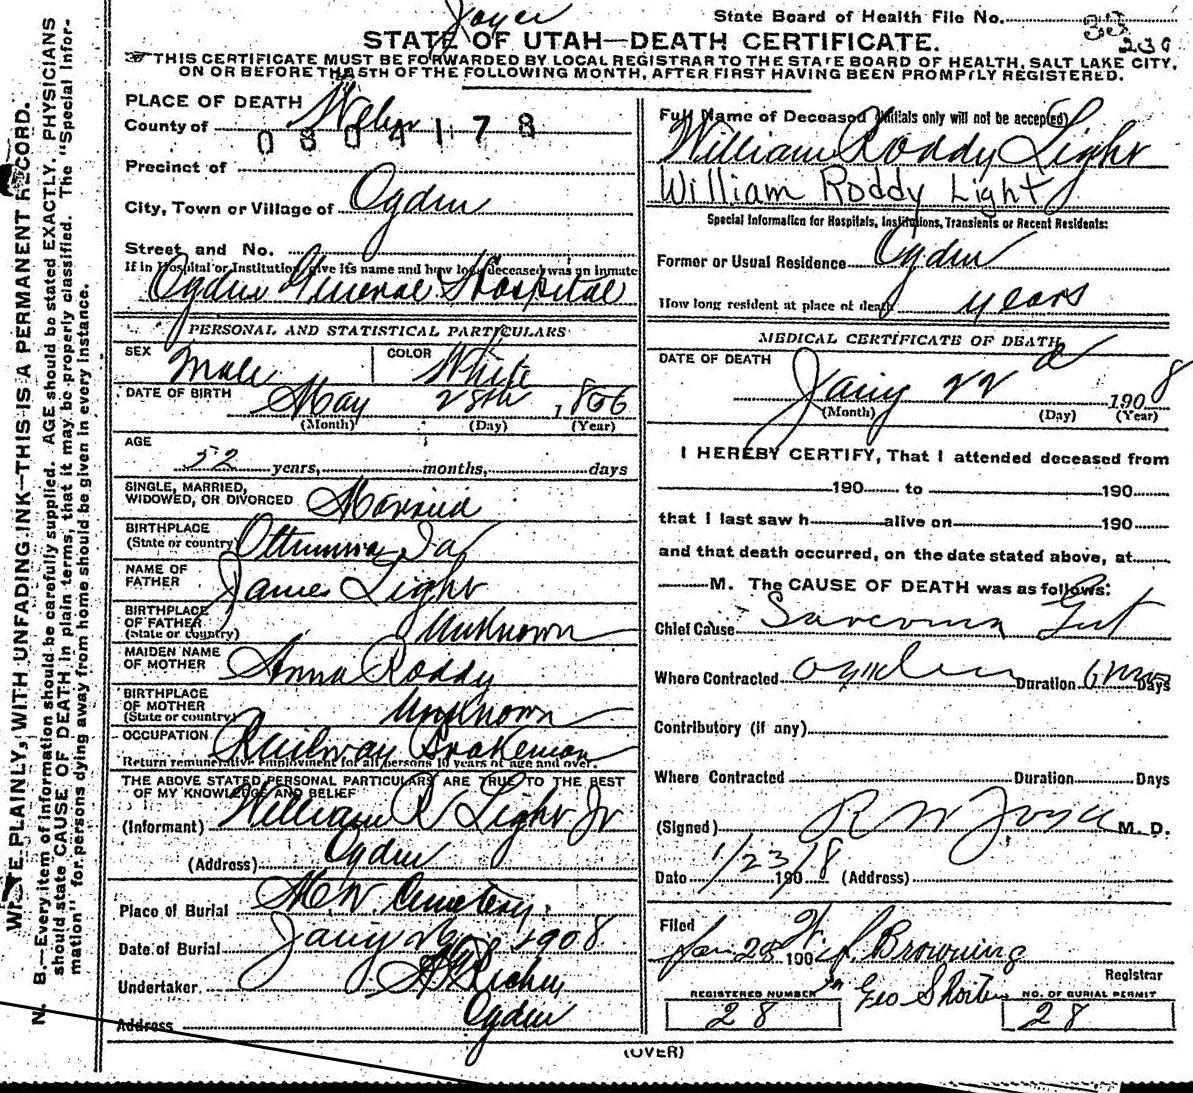 Joyce
State Board of Health File No.
STATE OF UTAH—DEATH CERTIFICATE.
THIS CERTIFICATE MUST BE FORWARDED BY LOCAL REGISTRAR TO THE STATE BOARD OF HEALTH, SALT LAKE CITY,
ON OR BEFORE THE 5TH OF THE FOLLOWING MONTH, AFTER FIRST HAVING BEEN PROMPTLY REGISTERED.
WRITE PLAINLY, WITH UNFADING INK—THIS IS A PERMANENT RECORD.
N. B.—Every item of information should be carefully supplied. AGE should be stated EXACTLY. PHYSICIANS
should state CAUSE OF DEATH in plain terms, that it may be properly classified. The "Special Infor-
mation" for persons dying away from home should be given in every instance.
PLACE OF DEATH
County of Weber
0804178
Precinct of
City, Town or Village of Ogden
Street and No.
If in Hospital or Institution, give its name and how long deceased was an inmate
Ogden General Hospital
PERSONAL AND STATISTICAL PARTICULARS
SEX Male COLOR White
DATE OF BIRTH May 28th 1856
(Month) (Day) (Year)
AGE
52 years, months, days
SINGLE, MARRIED,
WIDOWED, OR DIVORCED Married
BIRTHPLACE
(State or country) Ottumwa Ia
NAME OF
FATHER James Light
BIRTHPLACE
OF FATHER
(State or country) Unknown
MAIDEN NAME
OF MOTHER Anna Roddy
BIRTHPLACE
OF MOTHER
(State or country) Unknown
OCCUPATION Railway Brakeman
Return remunerative employment for all persons 10 years of age and over.
THE ABOVE STATED PERSONAL PARTICULARS ARE TRUE TO THE BEST
OF MY KNOWLEDGE AND BELIEF
(Informant) William R Light Jr
(Address) Ogden
Place of Burial Cemetery
Date of Burial Jany 26 1908
Undertaker, Richey
Address Ogden
Full Name of Deceased (Initials only will not be accepted)
William Roddy Light
William Roddy Light
Special Information for Hospitals, Institutions, Transients or Recent Residents:
Former or Usual Residence Ogden
How long resident at place of death years
MEDICAL CERTIFICATE OF DEATH
DATE OF DEATH
Jany 22d 1908
(Month) (Day) (Year)
I HEREBY CERTIFY, That I attended deceased from
190 to 190
that I last saw h alive on 190
and that death occurred, on the date stated above, at
M. The CAUSE OF DEATH was as follows:
Chief Cause Sarcoma Gut
Where Contracted Ogden Duration 6 mos Days
Contributory (if any)
Where Contracted Duration Days
(Signed) R W Joyce M. D.
Date 1/23/8 190 (Address)
Filed
Jan 28 190 Browning
Registrar
Geo Shorten
REGISTERED NUMBER
28
NO. OF BURIAL PERMIT
28
(OVER)